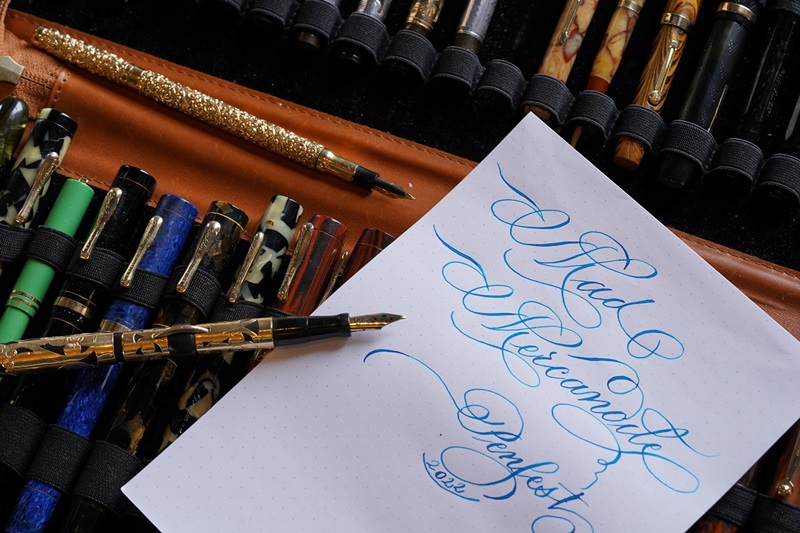 Mad
Mercantile
Penfest
2022